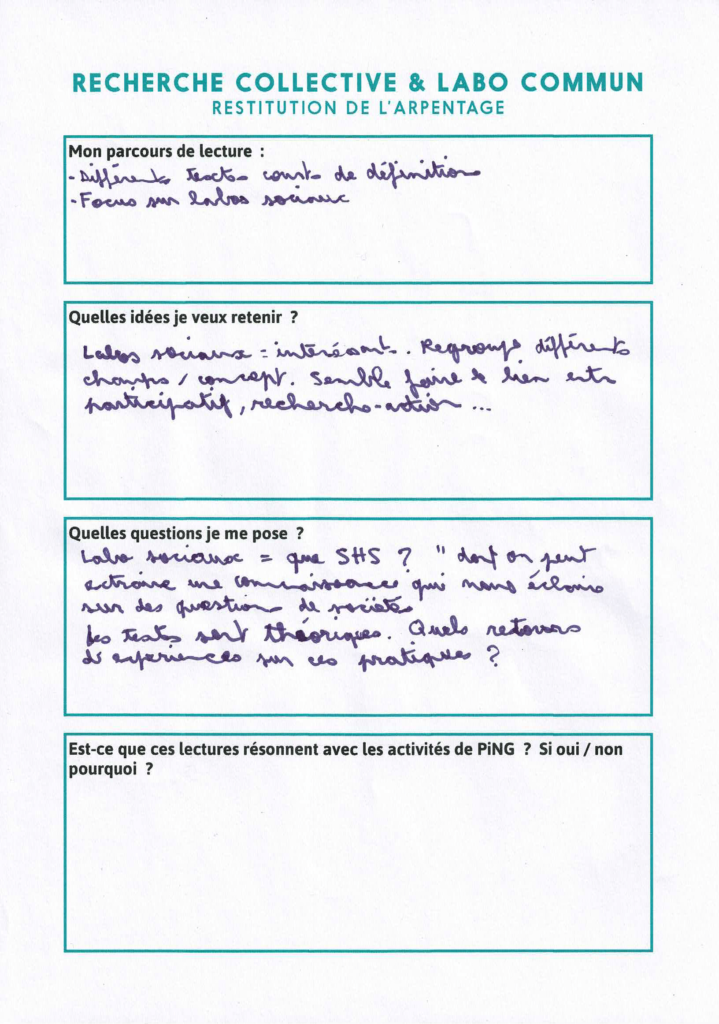 RECHERCHE COLLECTIVE & LABO COMMUN
RESTITUTION DE L'ARPENTAGE
Mon parcours de lecture :
- Différents textes courts de définitions
- Focus sur labos sociaux
Quelles idées je veux retenir ?
Labos sociaux = intéréssants. Regroupe différents
champs / concept. Semble faire le lien entre
participatif, recherche-action ...
Quelles questions je me pose ?
Labo sociaux = que SHS ? " dont on peut
extraire une connaissance qui nous éclaire
sur des questions de sociétés
Les textes sont théoriques. Quels retours
d'expériences sur ces pratiques ?
Est-ce que ces lectures résonnent avec les activités de PiNG ? Si oui / non
pourquoi ?